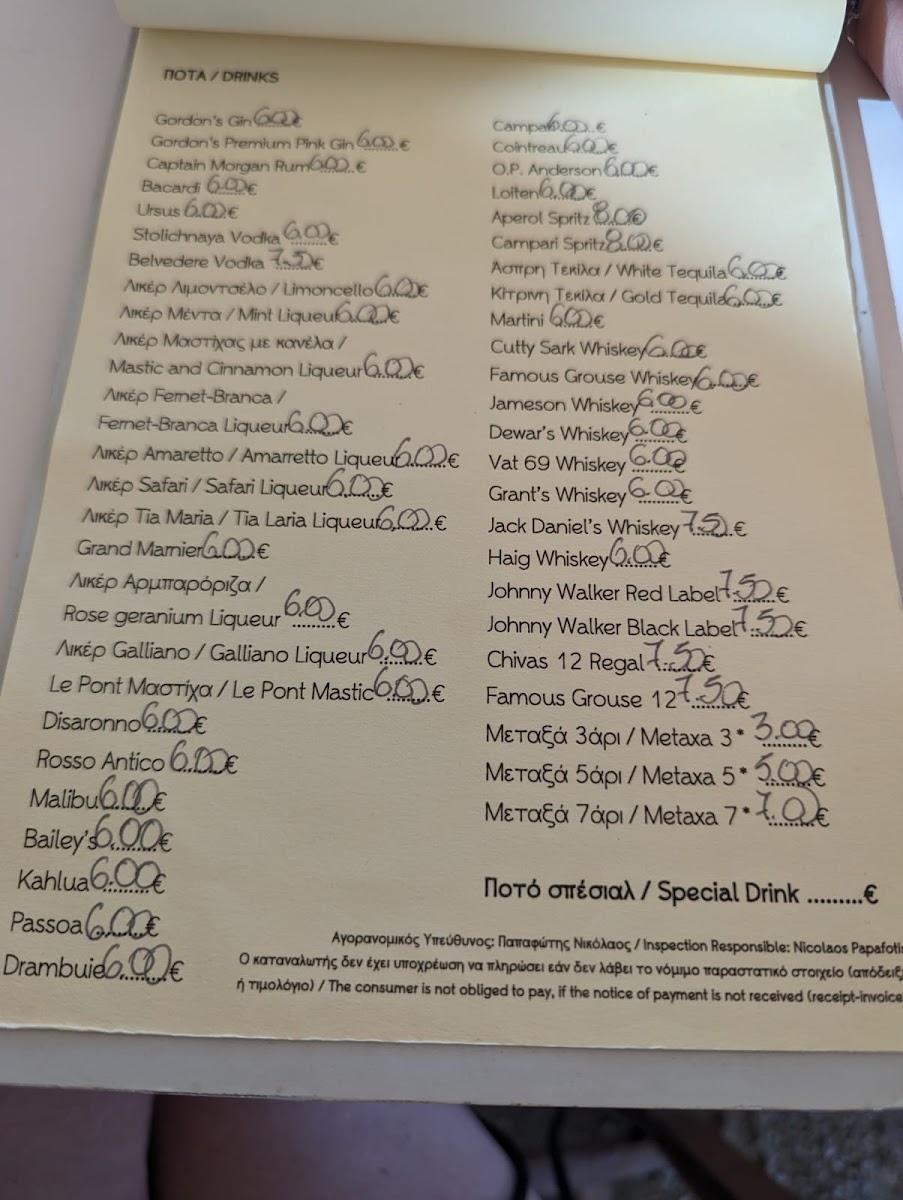 ΠΟΤΑ / DRINKS
Gordon's Gin 6.00€
Gordon's Premium Pink Gin 6.00.€
Captain Morgan Rum 6.00.€
Bacardi 6.00€
Ursus 6.00€
Stolichnaya Vodka 6.00€
Belvedere Vodka 7.50€
Λικέρ Λιμοντσέλο / Limoncello 6.00€
Λικέρ Μέντα / Mint Liqueur 6.00€
Λικέρ Μαστίχας με κανέλα /
Mastic and Cinnamon Liqueur 6.00€
Λικέρ Fernet-Branca /
Fernet-Branca Liqueur 6.00€
Λικέρ Amaretto / Amarretto Liqueur 6.00.€
Λικέρ Safari / Safari Liqueur 6.00.€
Λικέρ Tia Maria / Tia Laria Liqueur 6.00.€
Grand Marnier 6.00€
Λικέρ Αρμπαρόριζα /
Rose geranium Liqueur 6.00€
Λικέρ Galliano / Galliano Liqueur 6.00.€
Le Pont Μαστίχα / Le Pont Mastic 6.00.€
Disaronno 6.00€
Rosso Antico 6.00€
Malibu 6.00€
Bailey's 6.00€
Kahlua 6.00€
Passoa 6.00€
Drambuie 6.00€
Campari 6.00.€
Cointreau 6.00€
O.P. Anderson 6.00€
Loiten 6.00€
Aperol Spritz 8.00€
Campari Spritz 8.00€
Άσπρη Τεκίλα / White Tequila 6.00€
Κίτρινη Τεκίλα / Gold Tequila 6.00€
Martini 6.00€
Cutty Sark Whiskey 6.00€
Famous Grouse Whiskey 6.00€
Jameson Whiskey 6.00€
Dewar's Whiskey 6.00€
Vat 69 Whiskey 6.00€
Grant's Whiskey 6.00€
Jack Daniel's Whiskey 7.50.€
Haig Whiskey 6.00€
Johnny Walker Red Label 7.50€
Johnny Walker Black Label 7.50€
Chivas 12 Regal 7.50€
Famous Grouse 12 7.50€
Μεταξά 3άρι / Metaxa 3* 3.00€
Μεταξά 5άρι / Metaxa 5* 5.00€
Μεταξά 7άρι / Metaxa 7* 7.0€
Ποτό σπέσιαλ / Special Drink .........€
Αγορανομικός Υπεύθυνος: Παπαφώτης Νικόλαος / Inspection Responsible: Nicolaos Papafoti
Ο καταναλωτής δεν έχει υποχρέωση να πληρώσει εάν δεν λάβει το νόμιμο παραστατικό στοιχείο (απόδειξ
ή τιμολόγιο) / The consumer is not obliged to pay, if the notice of payment is not received (receipt-invoice